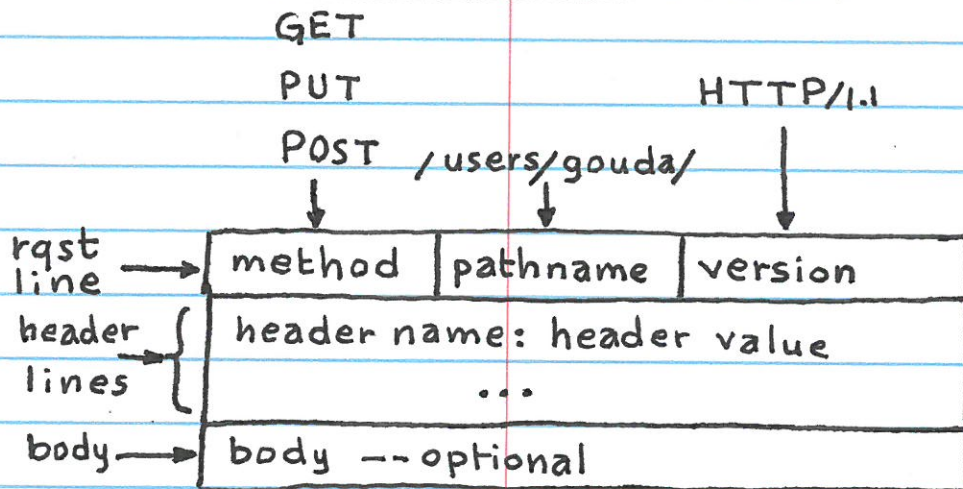 GET
PUT
HTTP/1.1
POST /users/gouda/
rqst line
method pathname version
header lines
header name: header value
...
body
body -- optional